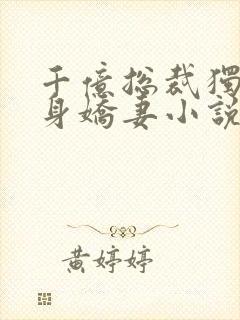 千億拯裁獨
身嬌妻小說
黃婷婷